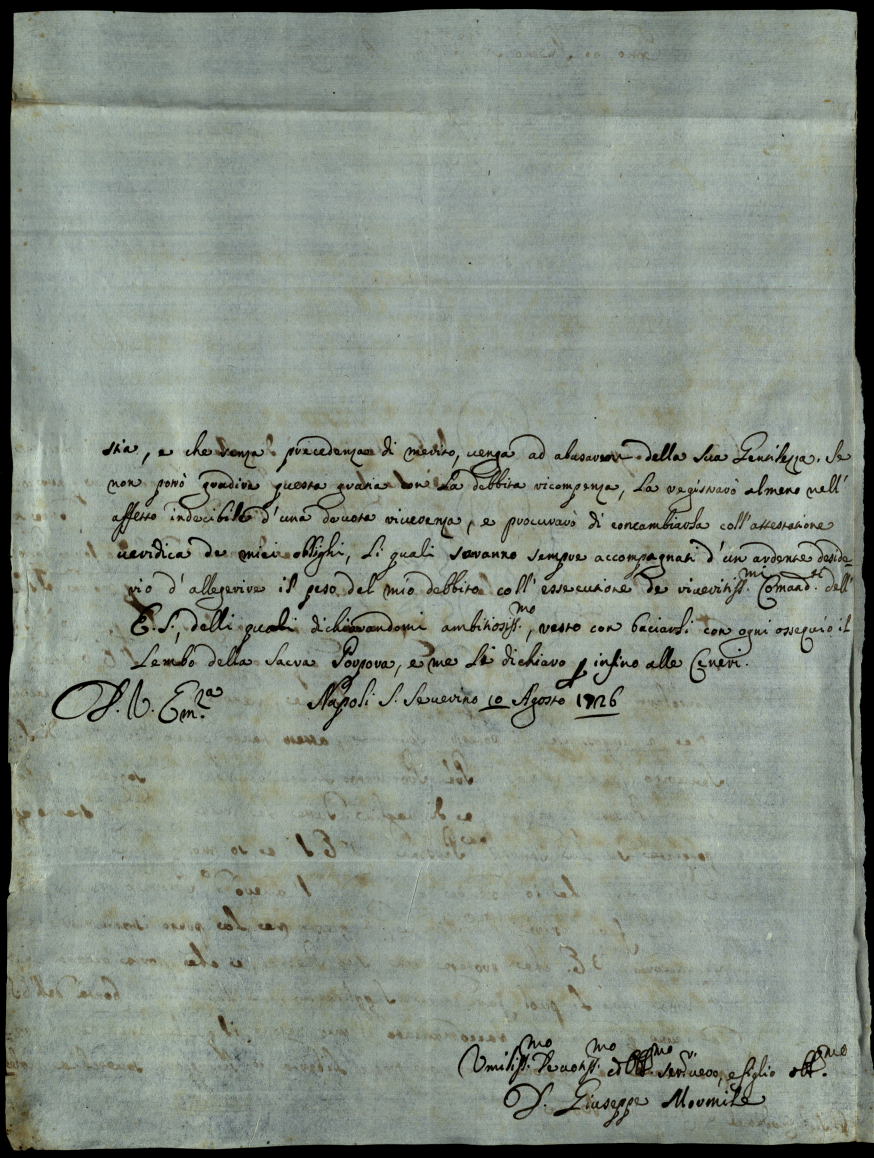 stia, e che senza precedenza di merito, venga ad abusarmi della Sua Gentilezza. Se
non potrò gradire questa grazia con la debbita ricompenza, la registrarò almeno nell'
affetto indicibile d'una devota riverenza, e procurarò di concambiarla coll'attestatione
veridica de miei oblighi, li quali saranno sempre accompagnati d'un ardente deside-
rio d'allegerire il peso del mio debbito coll'essecutione de riveritiss.mi Comand.ti dell'
E. S., delli quali dichiarandomi ambitiosiss.mo, resto con baciarli con ogni ossequio il
Lembo della Sacra Porpora, e me li dichiaro p infino alle Ceneri.
D. V. Em.za Napoli S. Severino 10 Agosto 1726
Umiliss.mo Devotiss.mo ed Obb.mo Servitore, e figlio obb.mo
D. Giuseppe Mormile